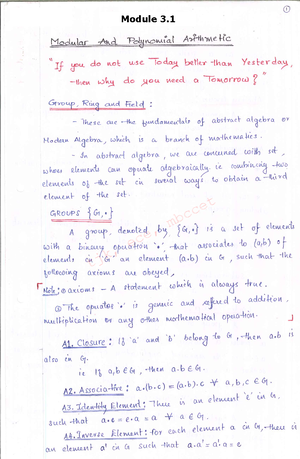 1
Module 3.1
Modular And Polynomial Arithmetic
"If you do not use Today better than Yesterday,
then why do you need a Tomorrow?"
Group, Ring and Field:
- These are the fundamentals of abstract algebra or
Modern Algebra, which is a branch of mathematics.
- In abstract algebra, we are concerned with set,
whose elements can operate algebraically ie combining two
elements of the set in several ways to obtain a third
element of the set.
GROUPS {G, •}
A group, denoted by {G, •} is a set of elements
with a binary operation '•', that associates to (a,b) of
elements in 'G', an element (a.b) in G, such that the
following axioms are obeyed,
Note: ① axioms - A statement which is always true.
② The operator '•' is generic and refered to addition,
multiplication or any other mathematical operation.
A1. Closure: If 'a' and 'b' belong to G, then a.b is
also in G.
ie If a,b ∈ G, then a.b ∈ G.
A2. Associative: a.(b.c) = (a.b).c ∀ a,b,c ∈ G.
A3. Identity Element: There is an element 'e' in G,
such that a.e = e.a = a ∀ a ∈ G.
A4. Inverse Element: For each element a in G, there is
an element a' in G such that a.a' = a'.a = e